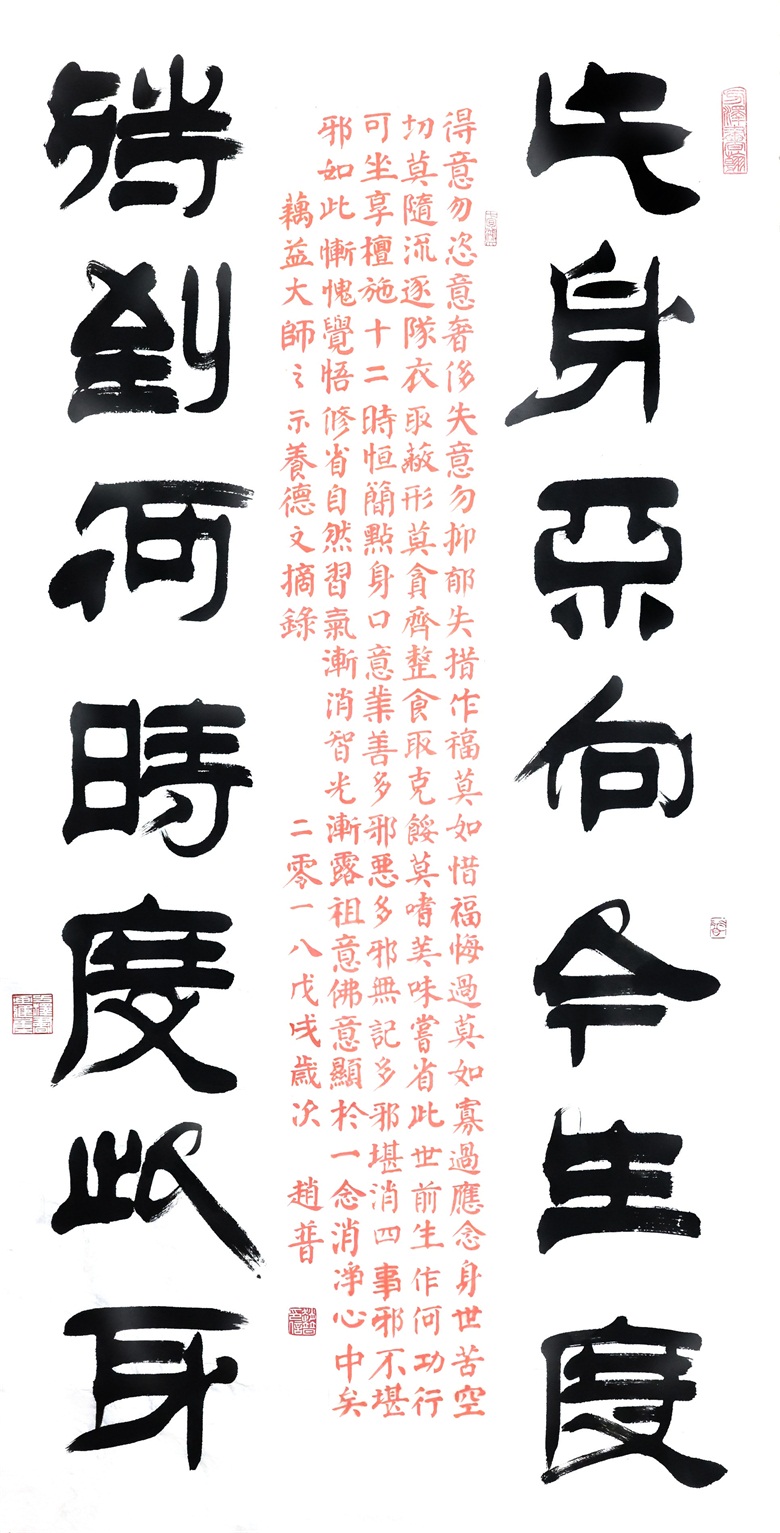 此身不向今生度
得意勿恣意奢侈失意勿抑郁失措作福莫如惜福悔過莫如寡過應念身世苦空
切莫隨流逐隊衣取蔽形莫貪齊整食取克餒莫嗜美味嘗省此世前生作何功行
可坐享檀施十二時恒簡點身口意業善多邪悪多邪無記多邪堪消四事邪不堪
邪如此慚愧覺悟修省自然習氣漸消智光漸露祖意佛意顯於一念消净心中矣
藕益大師之示養德文摘錄 二零一八戊戌歲次 趙普
待到何時度此身